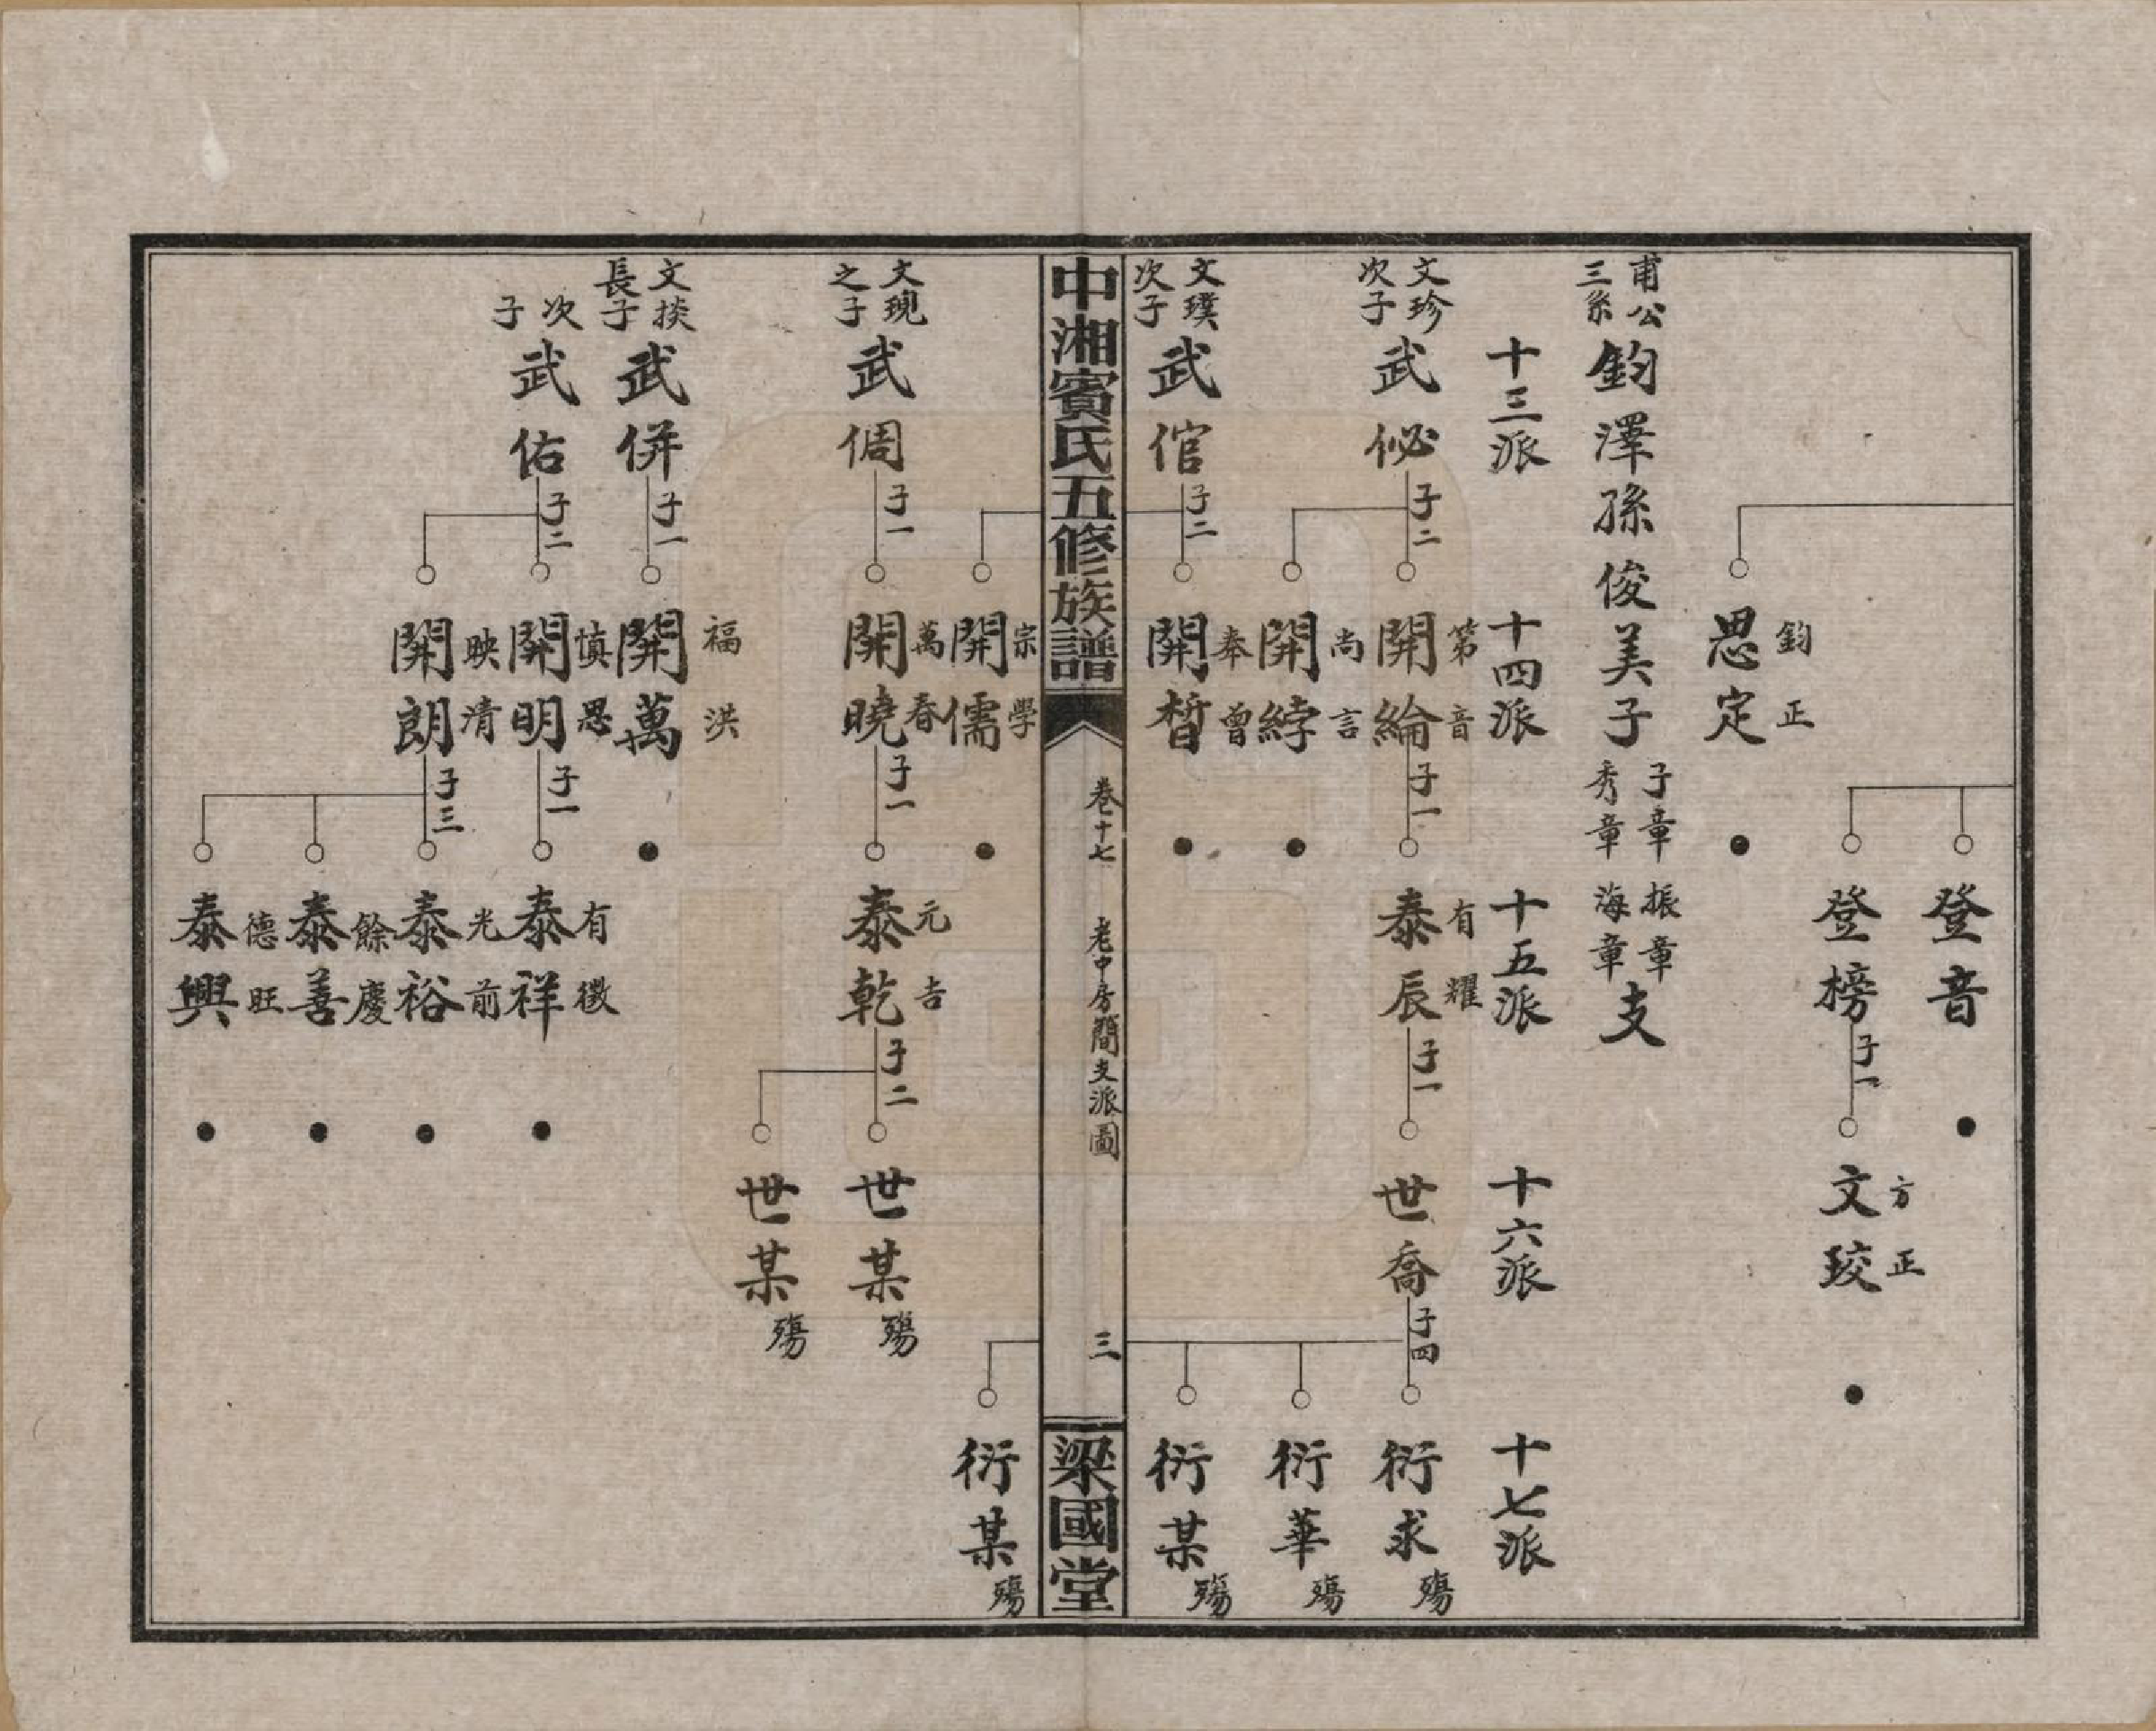 鈞正
思定
登音
登榜
子一
方正
文珓
甫公三系
鈞澤孫俊美子
子章秀章
振章海章
支
十三派
十四派
十五派
十六派
十七派
文珍次子
武佖
子二
第音
開綸
子一
有耀
泰辰
子一
世喬
子四
衍求
殤
尚言
開綍
衍華
殤
文璞次子
武倌
子二
奉曾
開晳
衍某
殤
中湘賓氏五修族譜
卷十七
老中房簡支派圖
三
梁國堂
宗學
開儒
衍某
殤
文現之子
武倜
子一
萬春
開曉
子一
元吉
泰乾
子二
世某
殤
世某
殤
文掞長子
武併
子一
福洪
開萬
次子
武佑
子二
慎思
開明
子一
有徵
泰祥
映清
開朗
子三
光前
泰裕
餘慶
泰善
德旺
泰興